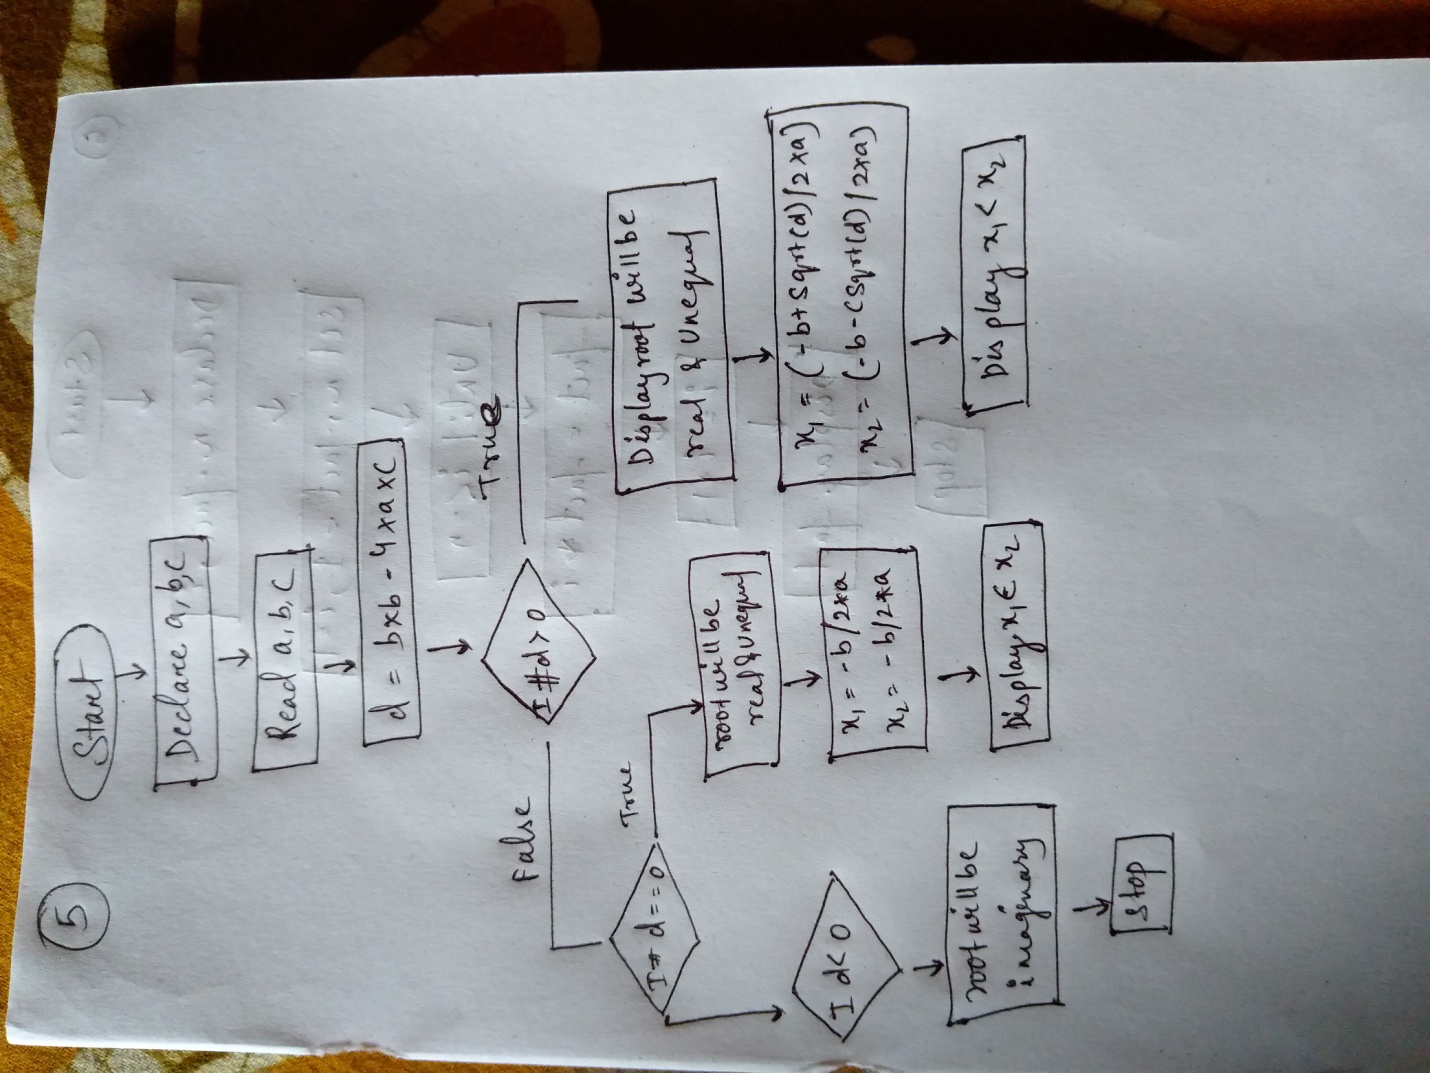 5
Start
Declare a,b,c
Read a,b,c
d = b×b - 4×a×c
I# d > 0
True
False
Display root will be
real & unequal
x₁ = (-b+sqrt(d)/2×a)
x₂ = (-b-(sqrt(d)/2×a)
Display x₁ < x₂
I# d==0
True
root will be
real & unequal
x₁ = -b/2*a
x₂ = -b/2*a
Display x₁ & x₂
I d<0
root will be
imagenary
Stop